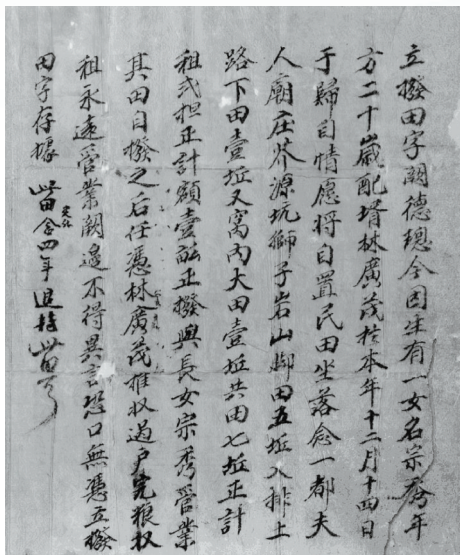 立撥田字闕德璁今因生有一女名宗秀年
方二十歲配壻林廣茂於本年十二月十四日
于歸自情愿將自置民田坐落念一都夫
人廟庄芥源坑獅子岩山脚田五坵入排上
路下田壹坵又窩內大田壹坵共田七坵正計
租弍担正計額壹畝正撥與長女宗秀營業
其田自撥之后任憑林廣茂推収過户完粮収
租永遠營業闕邉不得異言恐口無憑立撥
田字存據
光緒念四年退持